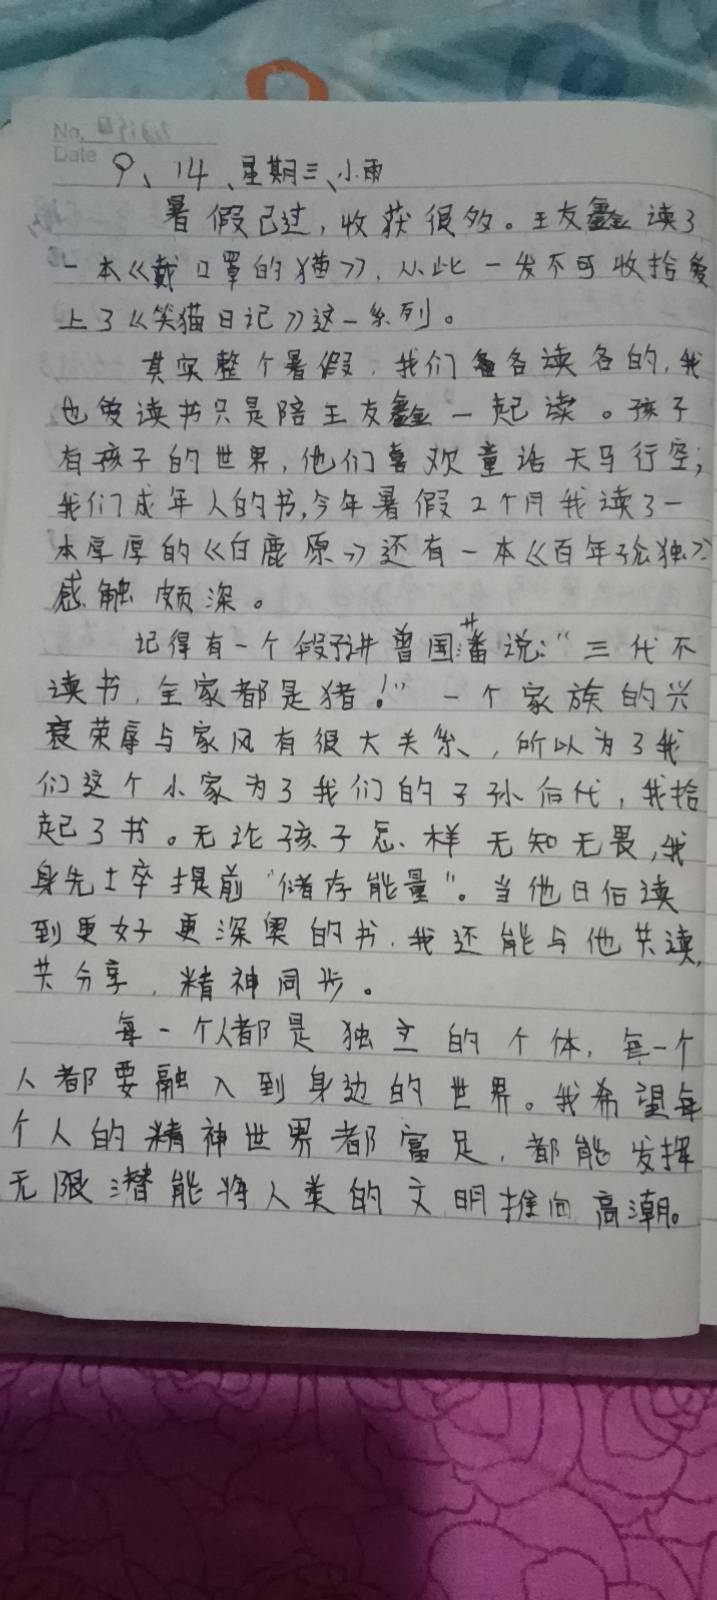 No.
Date
9、14、星期三、小雨
暑假已过，收获很多。王友鑫读了
一本《戴口罩的猫》，从此一发不可收拾爱
上了《笑猫日记》这一系列。
其实整个暑假，我们各读各的，我
也爱读书只是陪王友鑫一起读。孩子
有孩子的世界，他们喜欢童话天马行空；
我们成年人的书，今年暑假2个月我读了一
本厚厚的《白鹿原》还有一本《百年孤独》
感触颇深。
记得有一个段子讲曾国藩说：“三代不
读书，全家都是猪！”一个家族的兴
衰荣辱与家风有很大关系，所以为了我
们这个小家为了我们的子孙后代，我拾
起了书。无论孩子怎样无知无畏，我
身先士卒提前“储存能量”。当他日后读
到更好更深奥的书，我还能与他共读，
共分享，精神同步。
每一个人都是独立的个体，每一个
人都要融入到身边的世界。我希望每
个人的精神世界都富足，都能发挥
无限潜能将人类的文明推向高潮。